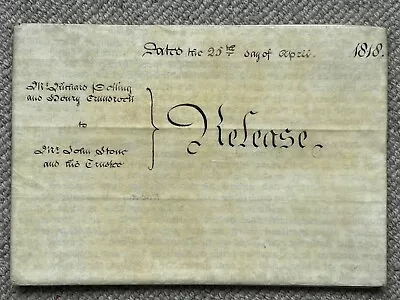 Dated the 25th day of April. 1818.
Mr. Richard
and Henry
to
Mr. John Stone
and his Trustee
Release.